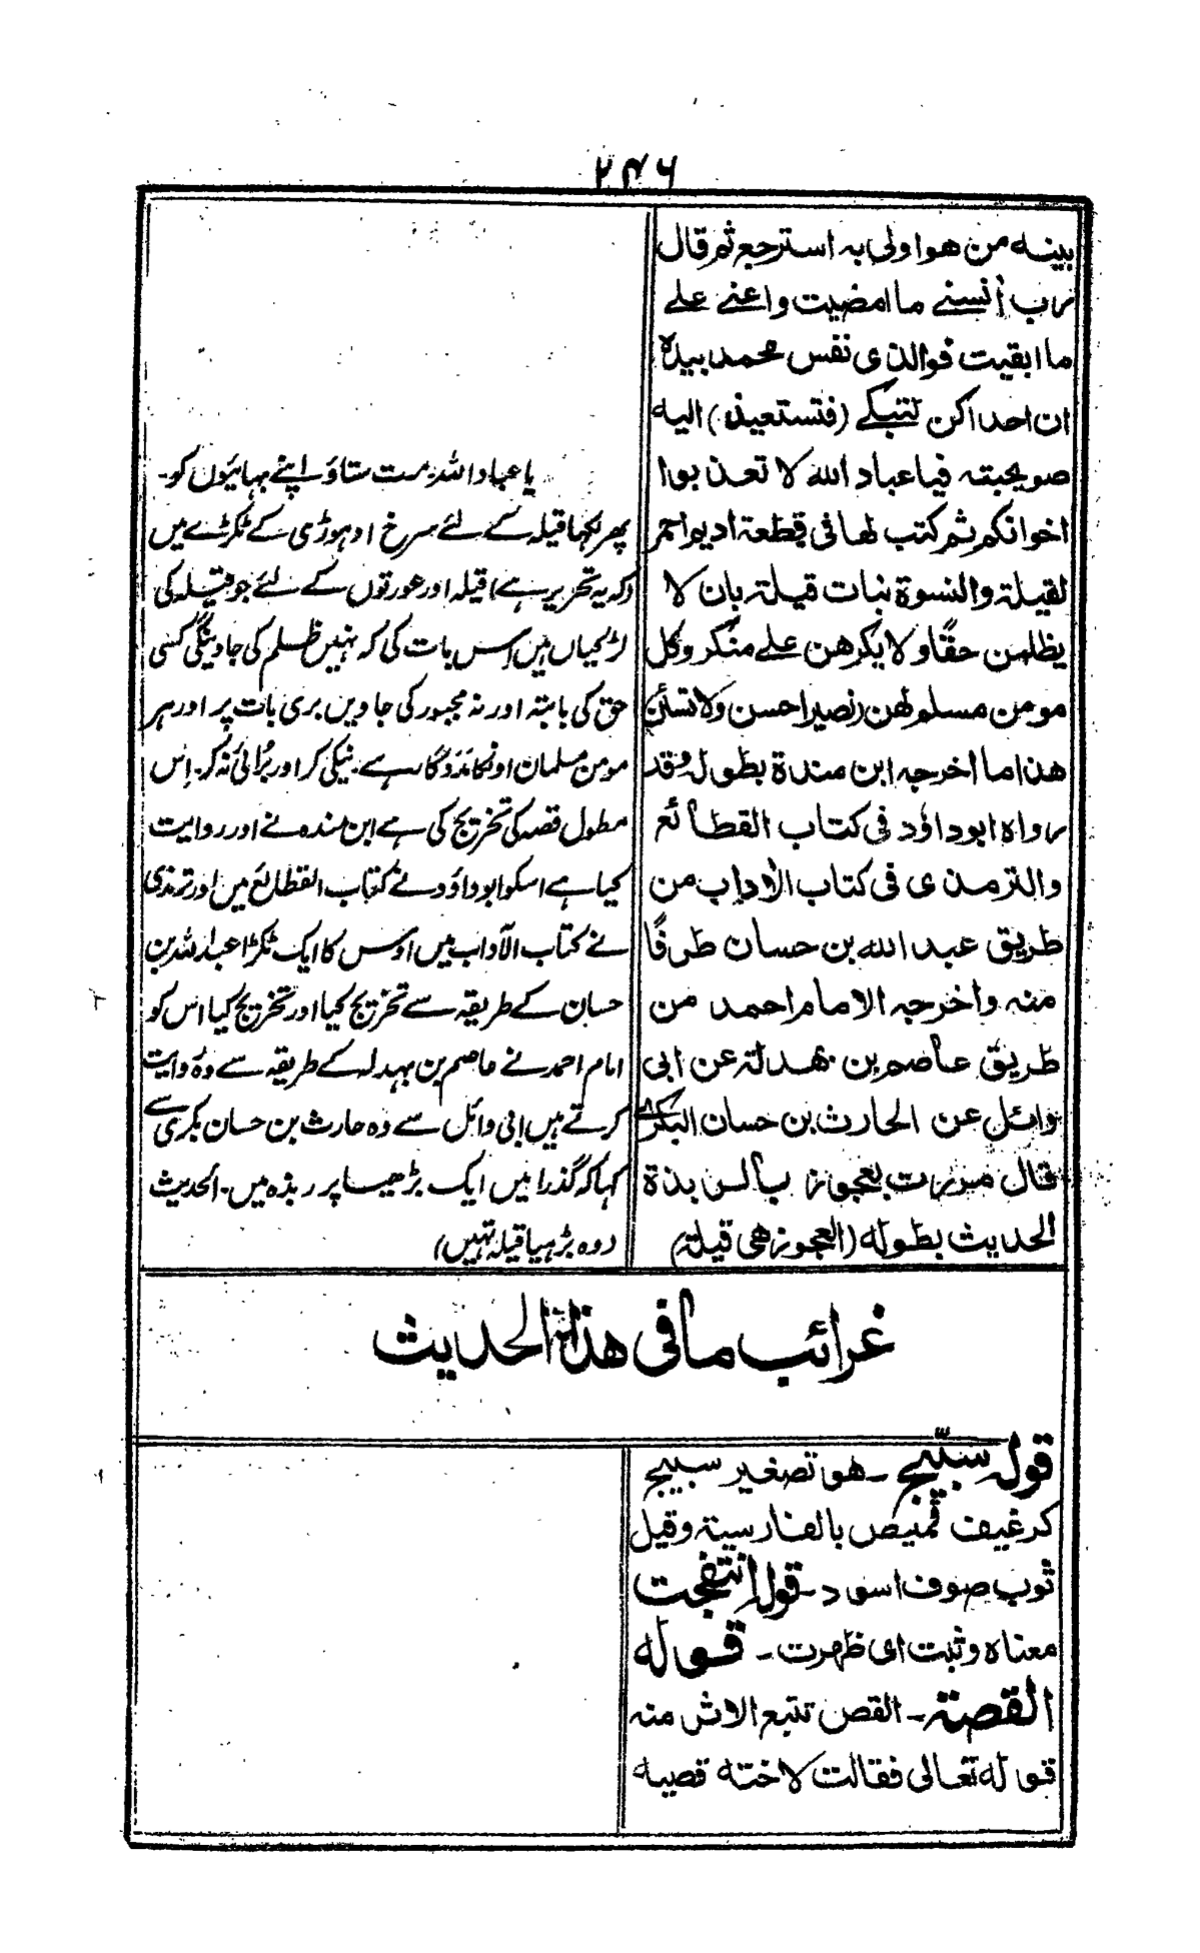 ۲۴۶
بينه من هو اولى به استرجع ثم قال
رب أنسنے ما امضيت واعنے علے
ما ابقيت فوالذي نفس محمد بيده
ان احداكن لتبكے (فتستعيذ) اليه
صويحبته فيا عباد الله لا تعذبوا
اخوانكم ثم كتب لها فى قطعة اديم احمر
لقيلة والنسوة بنات قيلة بان لا
يظلمن حقًا ولا يكرهن علے منكر وكل
مومن مسلم لهن نصير احسن ولا تسئن
هذا ما اخرجه ابن مندة بطوله وقد
رواه ابوداؤد فى كتاب القطائع
والترمذى فى كتاب الاداب من
طريق عبد الله بن حسان طرفًا
منه واخرجه الامام احمد من
طريق عاصم بن بهدلة عن ابى
وائل عن الحارث بن حسان البكرے
قال مررت بعجوز بالربذة
الحديث بطوله (العجوز هى قيلة)
یا عباد اللہ مت ستاؤ اپنے بہائیوں کو۔
پھر لکہا قیلہ کے لئے سرخ ادہوڑی کے ٹکڑے میں
(کہ یہ تحریر ہے) قیلہ اور عورتوں کے لئے جو قیلہ کی
لڑکیاں ہیں اِس بات کی کہ نہیں ظلم کی جاوینگی کسی
حق کی بابتہ اور نہ مجبور کی جاویں بری بات پر اور ہر
مومن مسلمان اونکا مددگار ہے۔ نیکی کر اور بُرائی نہ کر۔ اِس
مطول قصہ کی تخریج کی ہے ابن مندہ نے اور روایت
کیا ہے اسکو ابوداؤد نے کتاب القطائع میں اور ترمذی
نے کتاب الآداب میں اوس کا ایک ٹکڑا عبداللہ بن
حسان کے طریقہ سے تخریج کیا اور تخریج کیا اس کو
امام احمد نے عاصم بن بہدلہ کے طریقہ سے وہ روایت
کرتے ہیں ابی وائل سے وہ حارث بن حسان بکری سے
کہا کہ گذرا میں ایک بڑھیا پر ربذہ میں۔ الحدیث
(وہ بڑہیا قیلہ تہیں)
غرائب ما فى هذا الحديث
قوله سبيّج ـ هو تصغير سبيج
كرغيف قميص بالفارسية وقيل
ثوب صوف اسود ـ قوله انتفجت
معناه وثبت اى ظهرت ـ قوله
القصة ـ القص تتبع الاثر منه
قوله تعالى فقالت لاخته قصيه